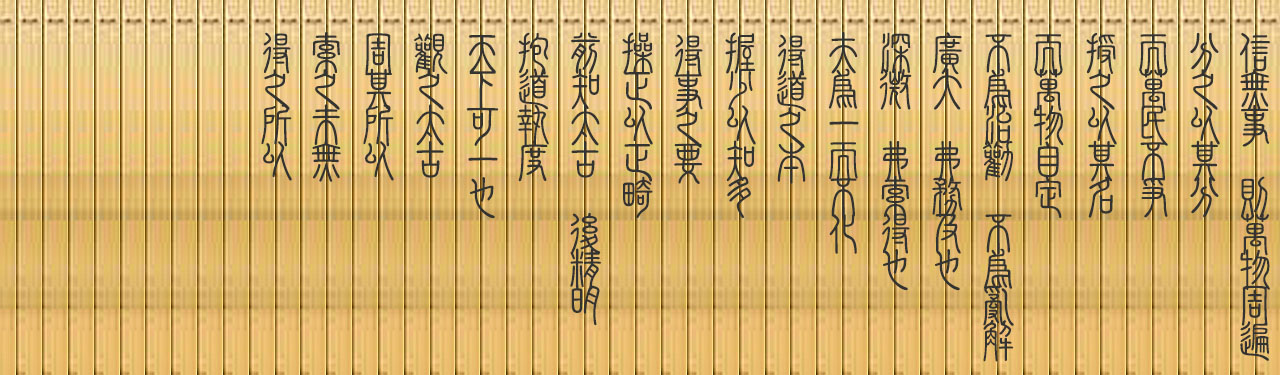 信無事　則萬物周遍
分之以其分
而萬民不爭
授之以其名
而萬物自定
不為治勸　不為亂解
廣大　弗務及也
深微　弗索得也
夫為一而不化
得道之本
握少以知多
得事之要
操正以正畸
前知太古　後精明
抱道執度
天下可一也
觀之太古
周其所以
索之未無
得之所以